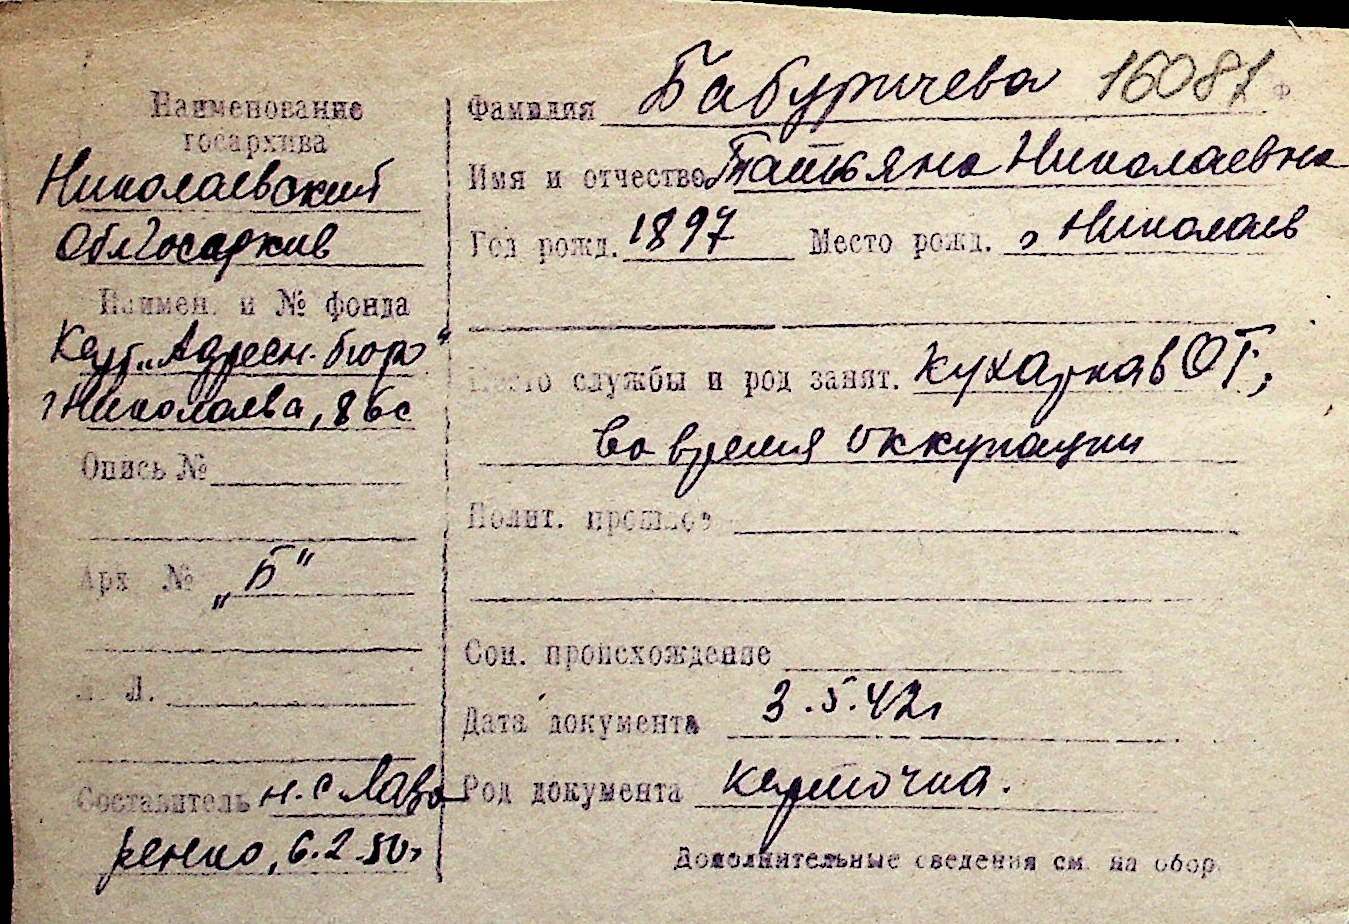 Наименование
госархива
Николаевский
Облгосархив
Наимен. и № фонда
Карт. „Адресн. бюро"
г Николаева, 8 бс
Опись №
Арх № „Б"
Л.
Составитель н.с Лавр
ренко, 6.2.50г
Фамилия Бабуричева 16081 Ф
Имя и отчество Татьяна Николаевна
Год рожд. 1897 Место рожд. г Николаев
Место службы и род занят. кухарка в ОТ,
во время оккупации
Полит. прошлое
Соц. происхождение
Дата документа 3.5.42г
Род документа карточка.
Дополнительные сведения см. на обор.